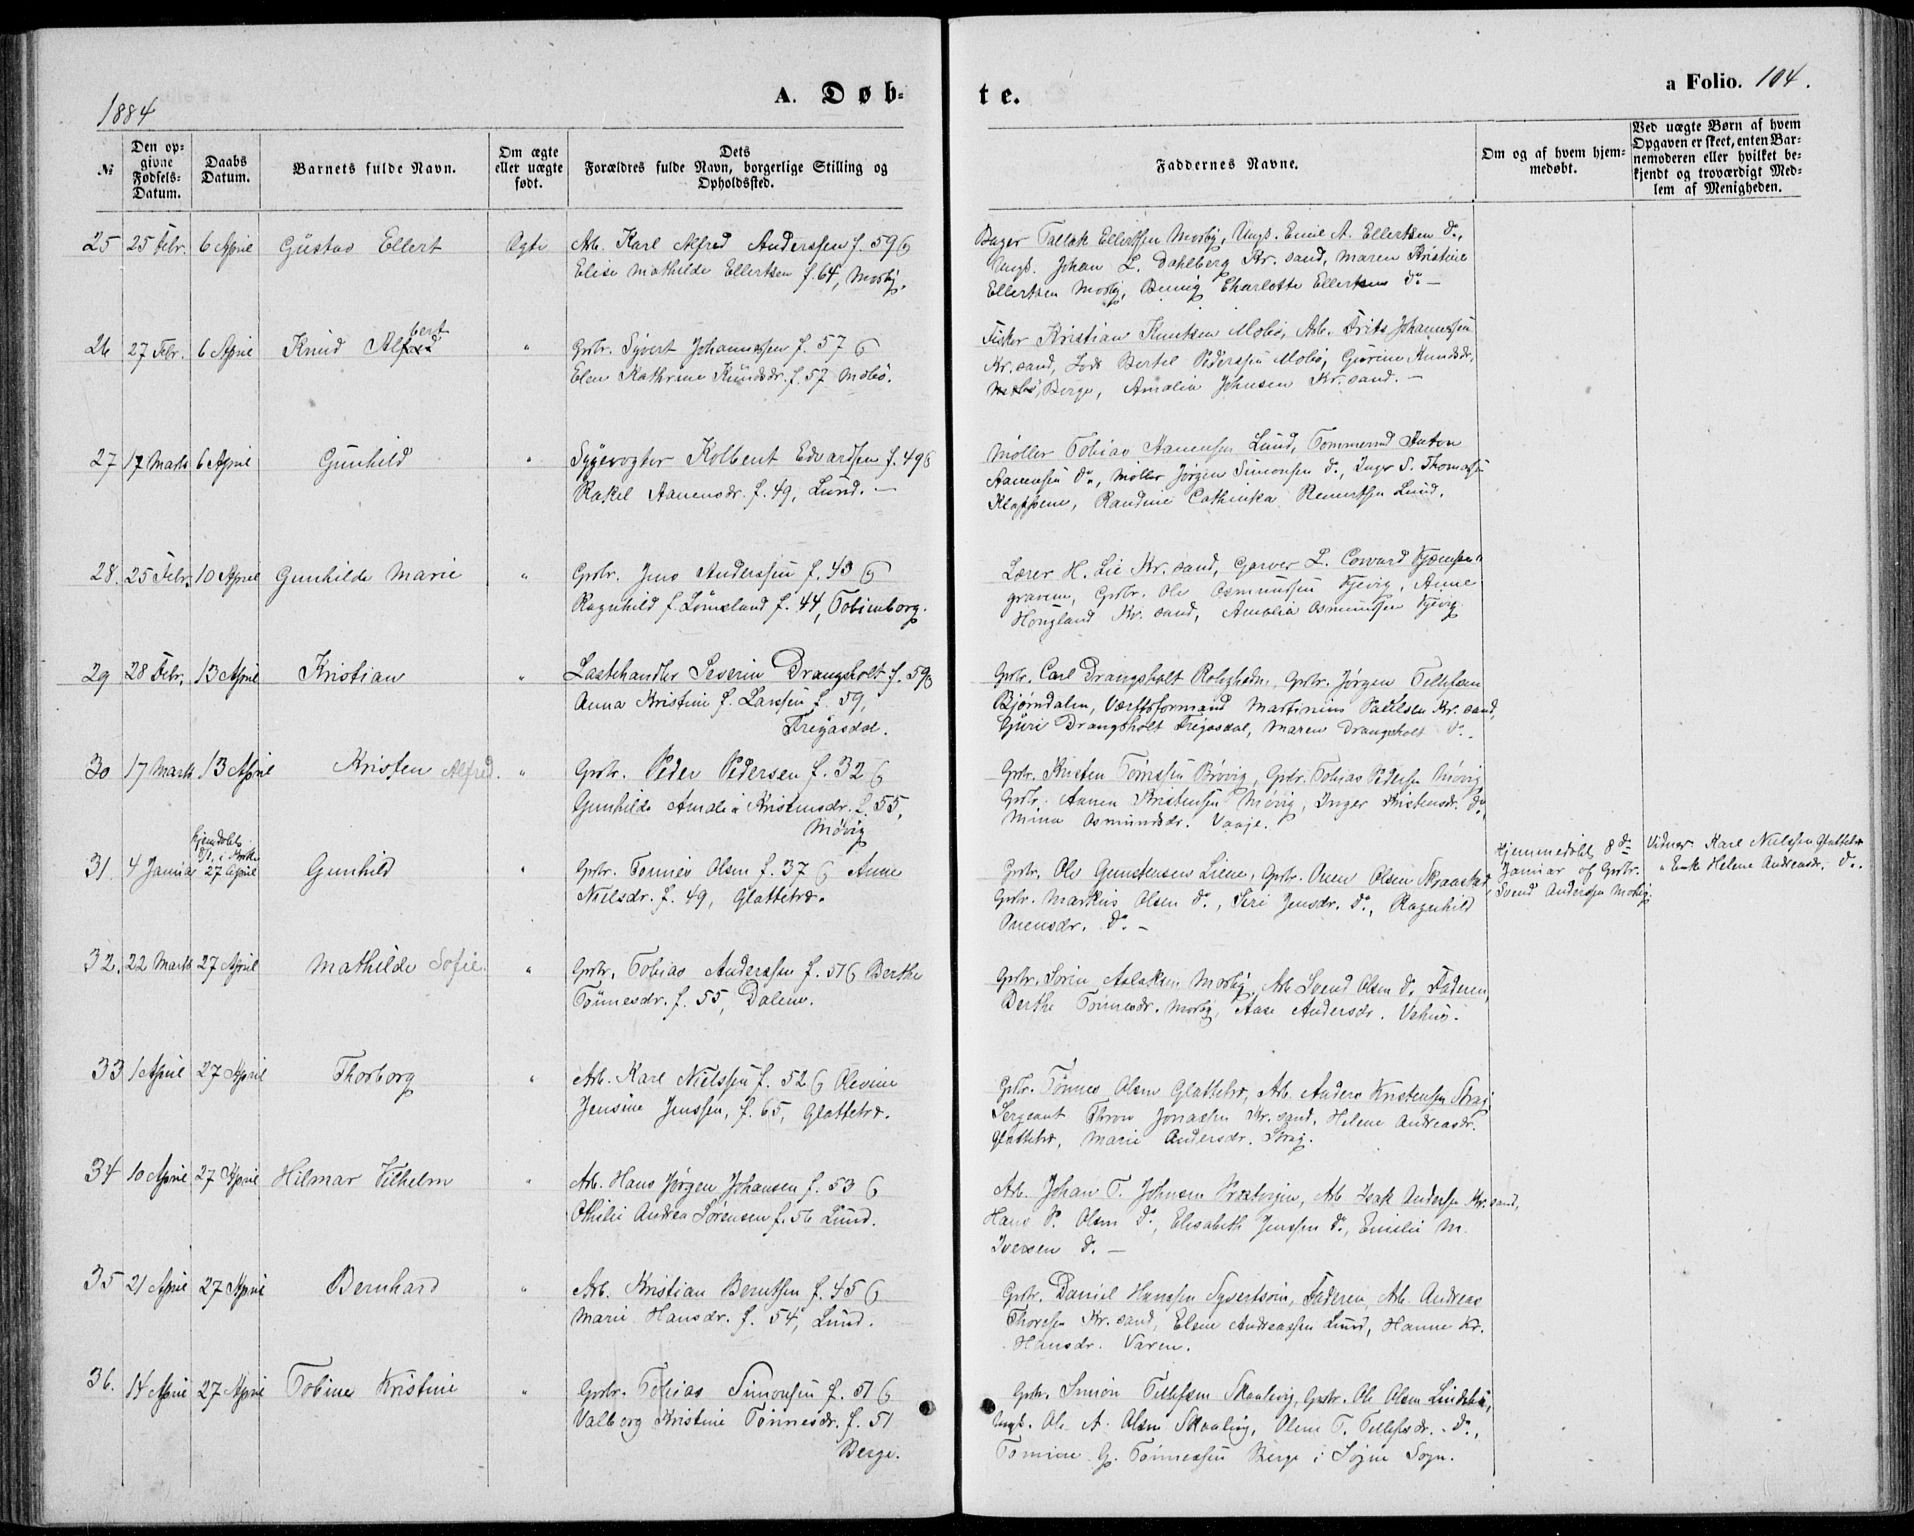 1884
A. Døb-
te.
a Folio. 104.
№
Den op-
givne
Fødsels-
Datum.
Daabs
Datum.
Barnets fulde Navn.
Om ægte
eller uægte
født.
Dets
Forældres fulde Navn, borgerlige Stilling og
Opholdssted.
Faddernes Navne.
Om og af hvem hjem-
medøbt.
Ved uægte Børn af hvem
Opgaven er skeet, enten Bar-
nemoderen eller hvilket be-
kjendt og troværdigt Med-
lem af Menigheden.
25 25 Febr. 6 April Gustav Ellert Ægte Arb. Karl Alfred Anderssen f. 59 &
Elise Mathilde Ellertsen f. 64, Mosby.
Bager Tallak Ellertsen Mosby, Ungk. Emil A. Ellertsen do.,
Ungk. Johan L. Dahlberg Kr.sand, Maren Kristine
Ellertsen Mosby, Charlotte Ellertsen do. —
26 27 Febr. 6 April Knud Albert " Grbr. Syvert Johannessen f. 57 &
Elen Kathrine Knudsdr. f. 57 Mobø.
Fisker Kristian Knutsen Mobø, Arb. Frits Johannessen
Kr.sand, Lods Bertel Pederssen Mobø, Gurine Knudsdr.
Berge, Amalia Johnsen Kr.sand. —
27 17 Marts 6 April Gunhild " Sygevogter Kolbent Edvardsen f. 49 &
Rakel Aanensdr. f. 49, Lund. —
Møller Tobias Aanensen Lund, Tømmermd Anton
Aanensen do., Møller Jørgen Simonsen do., Inger S. Thomassen
Kloppene, Randine Cathinka Reinertsen Lund.
28. 25 Febr. 10 April Gunhilde Marie " Grbr. Jens Anderssen f. 43 &
Ragnhild f. Lømsland f. 44, Tobienborg.
Lærer H. Lie Kr.sand, Garver L. Coward
graven, Grbr. Ole Osmundsen Kjevig, Anne
Hougland Kr.sand, Amalia Osmundsen Kjevig.
29 28 Febr. 13 April Kristian " Lastehandler Severin Drangsholt f. 59 &
Anna Kristine f. Larssen f. 59,
Frigasdal.
Grbr. Carl Drangsholt Rolighden, Grbr. Jørgen Tellefsen
Bjørndalen, Værftsformand Martinius Paulsen Kr.sand,
Guri Drangsholt Frigasdal, Maren Drangsholt do.
30 17 Marts 13 April Kristen Alfred. " Grbr. Peder Pedersen f. 32 &
Gunhilde Amalia Kristensdr. f. 55,
Møvig
Grbr. Kristen Tønssen Brøvig, Grbr. Tobias Pedersen Møvig
Grbr. Aanen Kristensen Møvig, Inger Kristensdr. do.,
Mina Osmundsdr. Vaaje.
31. 4 Januar hjemdøbt
8/1, i Kirke
27 April Gunhild " Grbr. Tønnes Olsen f. 37 & Anne
Nielsdr. f. 49, Glattetræ.
Grbr. Ole Gunstensen Liene, Grbr. Onen Olsen Skraastad,
Grbr. Markus Olsen do., Siri Jensdr. do., Ragnhild
Onensdr. do. —
Hjemmedøbt 8de
Januar af Grbr.
Svend Anderssen Mosby
Vidner. Karl Nielssen Glattetræ
" Enke Helene Andreasdr. do.
32. 22 Marts 27 April Mathilde Sofie. " Grbr. Tobias Anderssen f. 51 & Berthe
Tønnesdr. f. 55, Dalene.
Grbr. Søren Aslaksen Mosby, Arb. Svend Olsen do. Faderen,
Berthe Tønnesdr. Mosby, Aase Andersdr. Vehus.
33 1 April 27 April Thorborg " Arb. Karl Nielssen f. 52 & Olevine
Jensine Jenssen, f. 65, Glattetræ.
Grbr. Tønnes Olsen Glattetræ, Arb. Anders Kristensen Strag
Sergeant Thron Jonassen Kr.sand, Helene Andreasdr.
Glattetræ, Marie Andersdr. Strag.
34 10 April 27 April Hilmar Vilhelm " Arb. Hans Jørgen Johansen f. 53 &
Othilie Andrea Sørensen f. 56 Lund.
Arb. Johan T. Johnsen Præstvigen, Arb. Isak Andersen Kr.sand,
Hans P. Olsen do., Elisabeth Jenssen do., Emilie M.
Iversen do. —
35 21 April 27 April Bernhard " Arb. Kristian Berntsen f. 45 &
Marie Hansdr. f. 54, Lund.
Grbr. Daniel Hanssen Syvertsvin, Faderen, Arb. Andreas
Thorsen Kr.sand, Elene Andreassen Lund, Hanne Kr.
Hansdr. Varen.
36. 14 April 27 April Tobine Kristine " Grbr. Tobias Simonsen f. 51 &
Valborg Kristine Tønnesdr. f. 51
Berge.
Grbr. Simon Tellefsen Skaalevig, Grbr. Ole Olsen Lindebø,
Ungk. Ole A. Olsen Skaalvig, Olene T. Tellefsdr. do.,
Tomine G. Tønnessen Berge i Søgne Sogn.